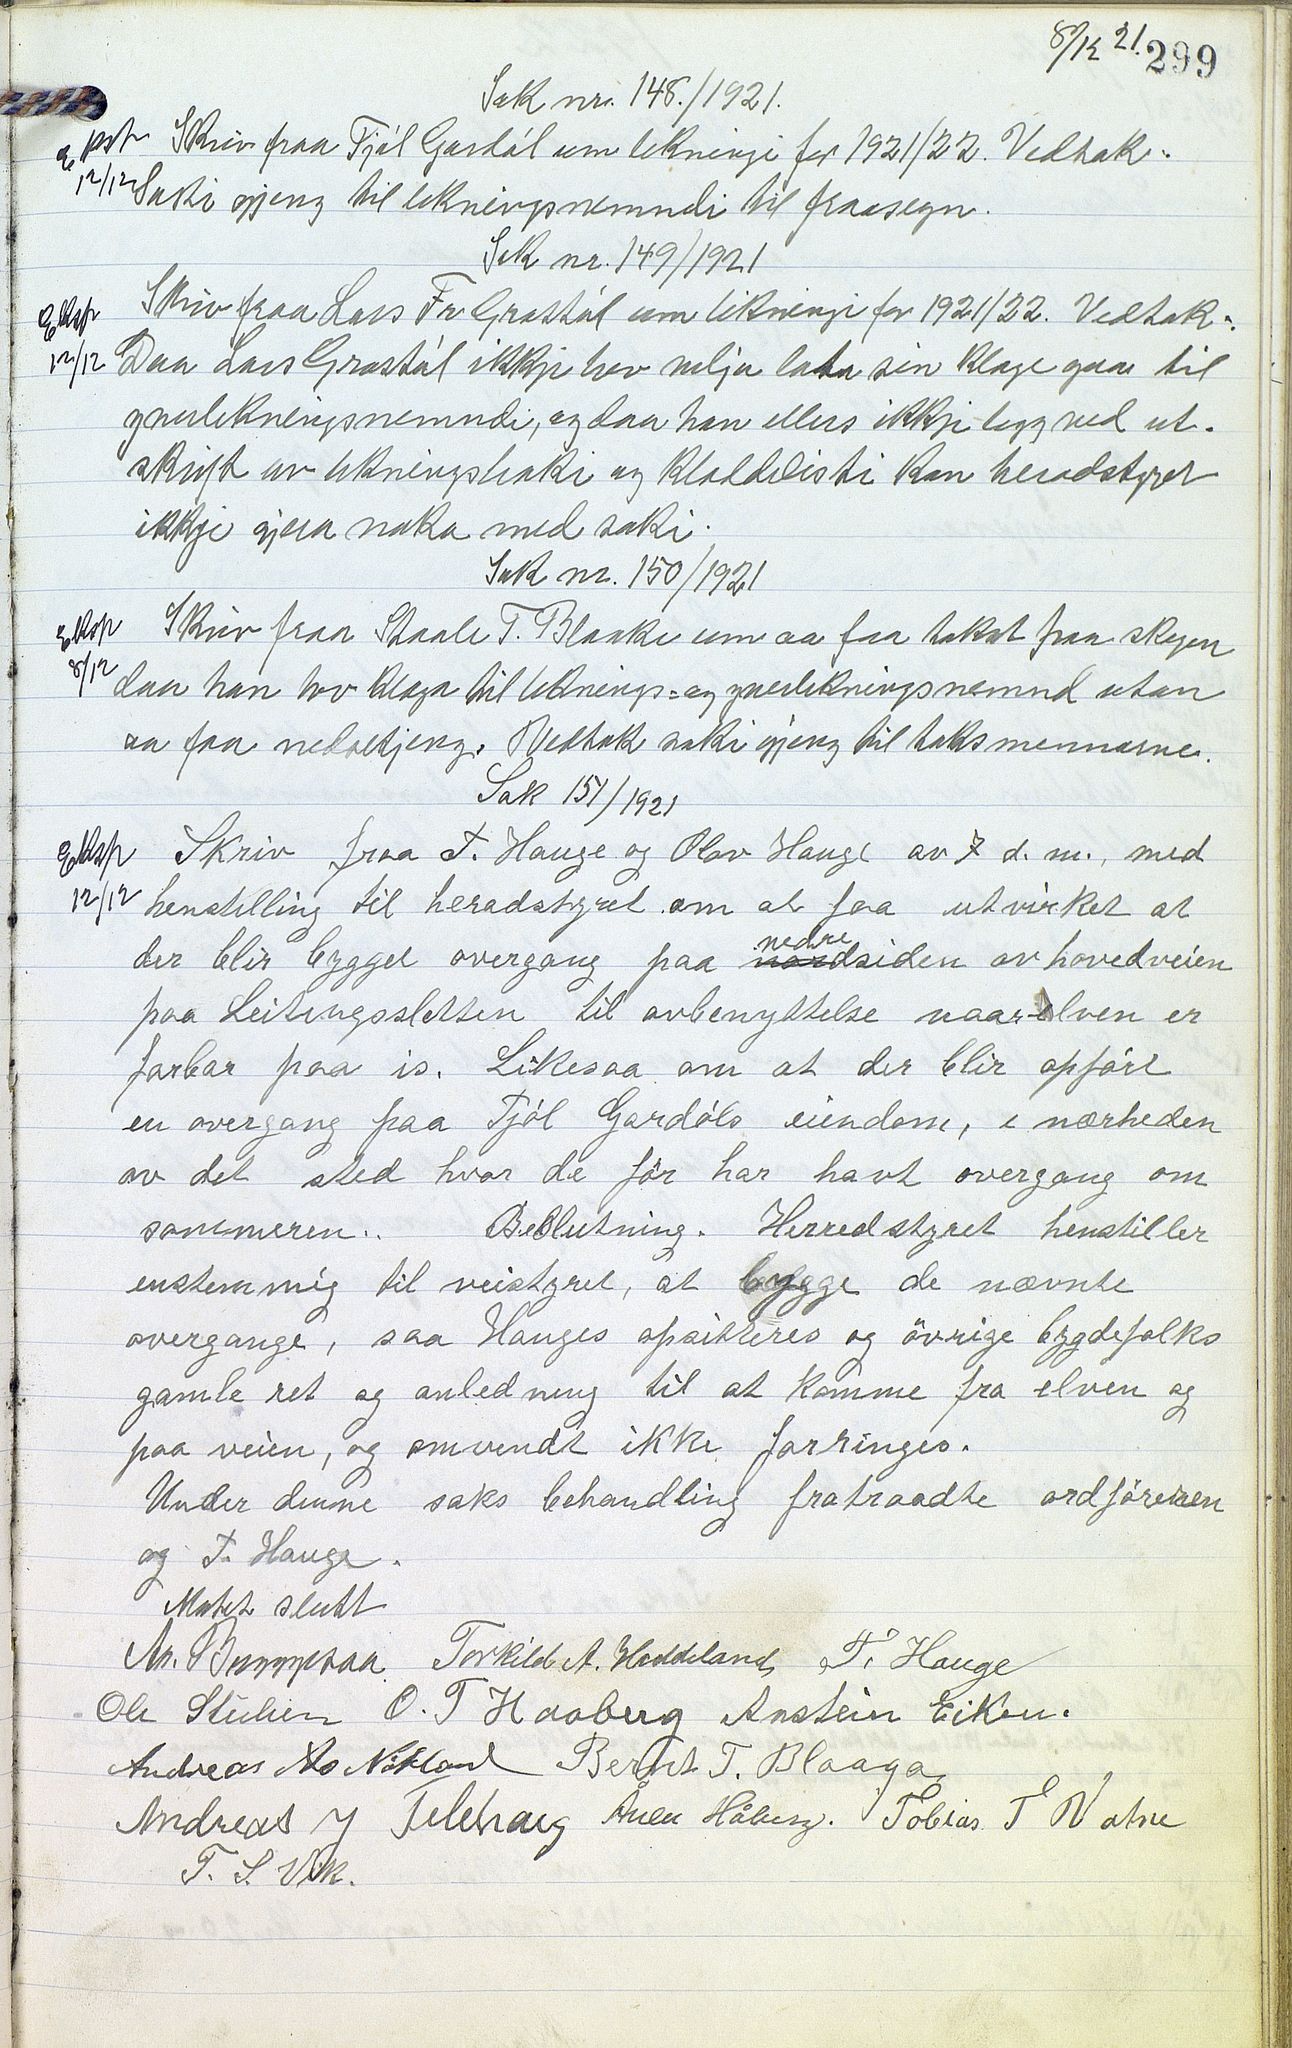 8/12 21. 299
Sak nr. 148./1921.
Eksp 12/12
Skriv fraa Tjöl Gardöl um likningi for 1921/22. Vedtak:
Saki gjeng til likningsnemndi til fraasegn.
Sak nr. 149/1921
Eksp 12/12
Skriv fraa Lars Fr Grostöl um likningi for 1921/22. Vedtak:
Daa Lars Grostöl ikkje hev vilja lata sin klage gaa til
yverlikningsnemndi, og daa han ellers ikkje legg ved ut-
skrift av likningsboki og kladdelisti kan heradstyret
ikkje gjera noko med saki.
Sak nr. 150/1921
Eksp 8/12
Skriv fraa Staale T. Blaake um aa faa takst fraa skogen
daa han hev klaga til liknings- og yverlikningsnemnd utan
aa faa nedsetjeng. Vedtak saki gjeng til taksmennarne.
Sak 151/1921
Eksp 12/12
Skriv fraa T. Hauge og Olav Hauge av 7 d. m., med
henstilling til heradstyret om at faa utvirket at
der blir bygget overgang paa nedre siden av hovedveien
paa Leitingssletten til avbenyttelse naar elven er
farbar paa is. Likesaa om at der blir opfört
en overgang paa Tjöl Gardöls eiendom, i nærheden
av det sted hvor de för har havt overgang om
sommeren. Beslutning. Herredstyret henstiller
enstemmig til veistyret, at bygge de nævnte
overgange, saa Hauges opsitteres og övrige bygdefolks
gamle ret og anledning til at komme fra elven og
paa veien, og omvendt ikke forringes.
Under denne saks behandling fratraadte ordföreren
og T. Hauge.
Möted slutt
Torkild A. Haddeland T. Hauge
O. T Haaberg Anstein Eiken.
Andreas Bernt T. Blaaga
Andreas J Telehaug Håberg. Tobias T Vatne
T. S. Vik.